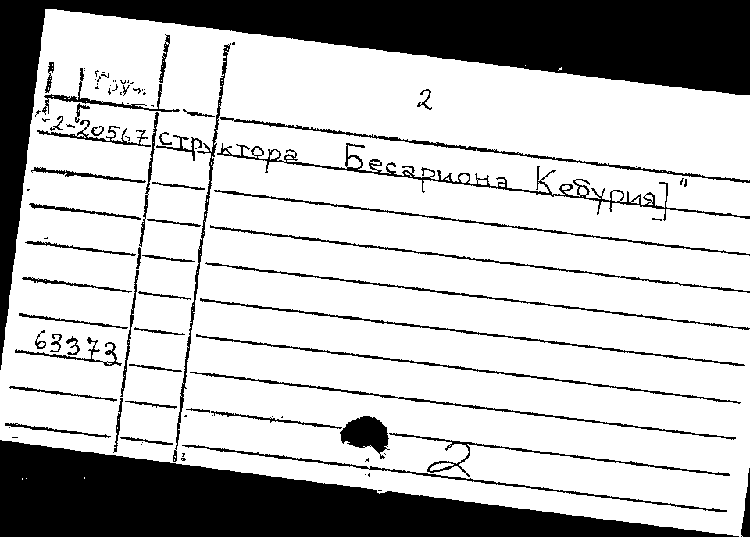 Груз.
2
2-20567 структора Бесариона Кебурия]"
63373
2